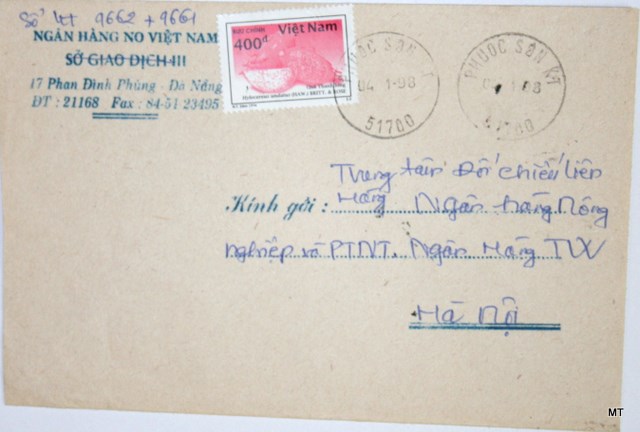 Số KT 9662 + 9661
NGÂN HÀNG NO VIỆT NAM
SỞ GIAO DỊCH III
17 Phan Đình Phùng - Đà Nẵng
ĐT : 21168 Fax : 84-51 23495
BƯU CHÍNH Việt Nam
400đ
PHUOC SON KT
04 1-98
51700
PHUOC SON KT
04 1-98
51700
Trung tâm Đối chiếu liên
Kính gửi : Hàng Ngân hàng Nông
nghiệp và PTNT. Ngân Hàng TW
Hà Nội
MT